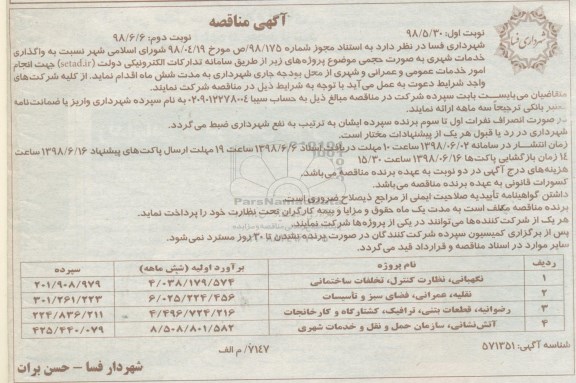 آگهی مناقصه
شهرداری فسا
نوبت اول: ۹۸/۵/۳۰
نوبت دوم: ۹۸/۶/۶
شهرداری فسا در نظر دارد به استناد مجوز شماره ۹۸/۱۷۵/ص مورخ ۹۸/۰۴/۱۹ شورای اسلامی شهر نسبت به واگذاری
خدمات شهری به صورت حجمی موضوع پروژه‌های زیر از طریق سامانه تدارکات الکترونیکی دولت (setad.ir) جهت انجام
امور خدمات عمومی و عمرانی و شهری از محل بودجه جاری شهرداری به مدت شش ماه اقدام نماید. از کلیه شرکت‌های
واجد شرایط دعوت به عمل می‌آید با توجه به شرایط ذیل در مناقصه شرکت نمایند.
متقاضیان می‌بایست بابت سپرده شرکت در مناقصه مبالغ ذیل به حساب سیبا ۰۲۰۹۰۱۲۲۷۸۰۰۴ به نام سپرده شهرداری واریز یا ضمانت‌نامه
معتبر بانکی ترجیحاً سه ماهه ارائه نمایند.
در صورت انصراف نفرات اول تا سوم برنده سپرده ایشان به ترتیب به نفع شهرداری ضبط می‌گردد.
شهرداری در رد یا قبول هر یک از پیشنهادات مختار است.
زمان انتشار در سامانه ۱۳۹۸/۰۶/۰۲ ساعت ۱۰ مهلت دریافت اسناد ۱۳۹۸/۶/۶ ساعت ۱۹ مهلت ارسال پاکت‌های پیشنهاد ۱۳۹۸/۶/۱۶ ساعت
۱۴ زمان بازگشایی پاکت‌ها ۱۳۹۸/۰۶/۱۶ ساعت ۱۵/۳۰
هزینه‌های درج آگهی در دو نوبت به عهده برنده مناقصه می‌باشد.
کسورات قانونی به عهده برنده مناقصه می‌باشد.
داشتن گواهینامه تأییدیه صلاحیت ایمنی از مراجع ذیصلاح ضروری است.
برنده مناقصه مکلف است به مدت یک ماه حقوق و مزایا و بیمه کارگران تحت نظارت خود را پرداخت نماید.
هر یک از شرکت کننده‌ها می‌توانند در یکی از پروژه‌ها شرکت نمایند.
پس از برگزاری کمیسیون سپرده شرکت کنندگان در صورت برنده نشدن تا ۳۰ روز مسترد نمی‌شود.
سایر موارد در اسناد مناقصه و قرارداد قید می‌گردد.
ردیف نام پروژه برآورد اولیه (شش ماهه) سپرده
۱ نگهبانی، نظارت کنترل، تخلفات ساختمانی ۴/۰۳۸/۱۷۹/۵۷۴ ۲۰۱/۹۰۸/۹۷۹
۲ نقلیه، عمرانی، فضای سبز و تأسیسات ۶/۰۲۵/۲۲۴/۴۵۶ ۳۰۱/۲۶۱/۲۲۳
۳ رضوانیه، قطعات بتنی، ترافیک، کشتارگاه و کارخانجات ۴/۴۹۶/۷۲۴/۲۱۶ ۲۲۴/۸۳۶/۲۱۱
۴ آتش‌نشانی، سازمان حمل و نقل و خدمات شهری ۸/۵۰۸/۸۰۱/۵۸۲ ۴۲۵/۴۴۰/۰۷۹
شناسه آگهی: ۵۷۱۳۵۱
۷۱۴۷/ م الف
شهردار فسا – حسن برات